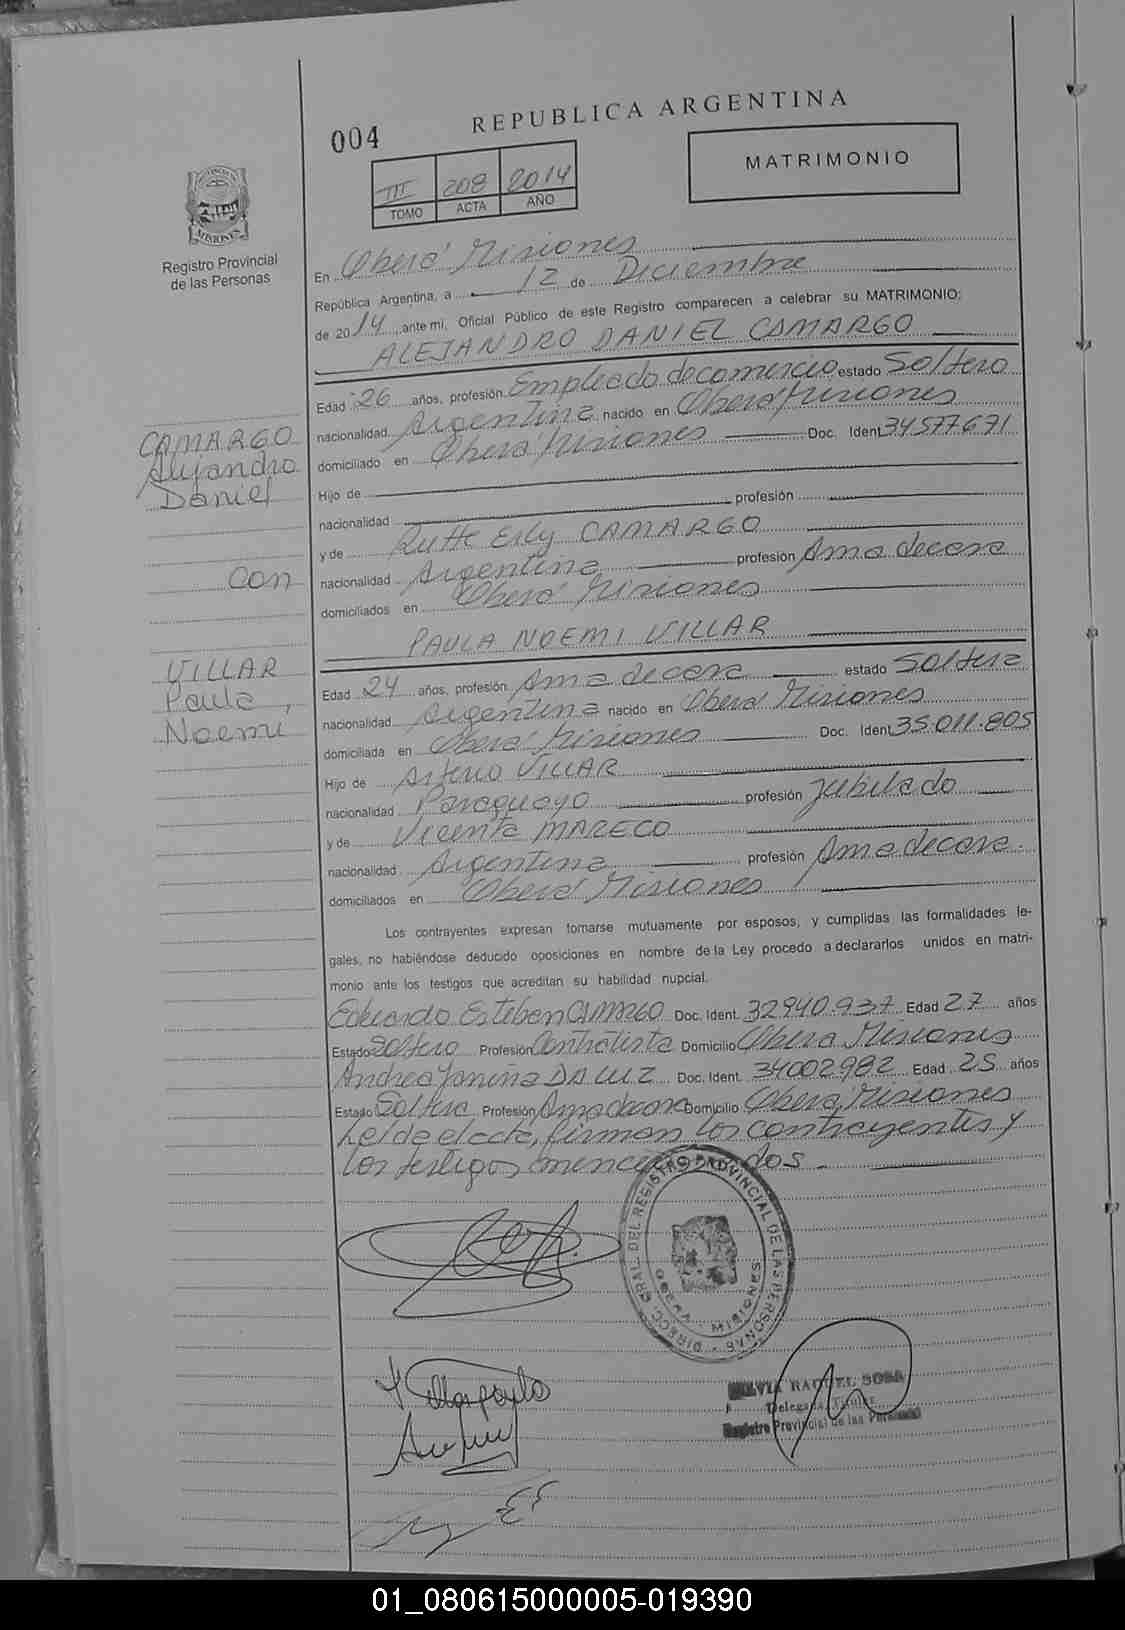 REPUBLICA ARGENTINA
004
MATRIMONIO
III 208 2014
TOMO ACTA AÑO
MISIONES
Registro Provincial
de las Personas
En Oberá Misiones
República Argentina, a 12 de Diciembre
de 2014 ante mi, Oficial Público de este Registro comparecen a celebrar su MATRIMONIO:
ALEJANDRO DANIEL CAMARGO
Edad 26 años, profesión Empleado de comercio estado Soltero
nacionalidad Argentina nacido en Oberá Misiones
domiciliado en Oberá Misiones Doc. Ident 34577671
Hijo de
nacionalidad profesión
y de Ruth Eily CAMARGO
nacionalidad Argentina profesión Ama de casa
domiciliados en Oberá Misiones
CAMARGO
Alejandro
Daniel
Con
VILLAR
Paula
Noemi
PAULA NOEMI VILLAR
Edad 24 años, profesión Ama de casa estado Soltera
nacionalidad Argentina nacido en Oberá Misiones
domiciliada en Oberá Misiones Doc. Ident 35.011.805
Hijo de Arturo VILLAR
nacionalidad Paraguayo profesión Jubilado
y de Vicenta MARECO
nacionalidad Argentina profesión Ama de casa.
domiciliados en Oberá Misiones
Los contrayentes expresan tomarse mutuamente por esposos, y cumplidas las formalidades le-
gales, no habiéndose deducido oposiciones en nombre de la Ley procedo a declararlos unidos en matri-
monio ante los testigos que acreditan su habilidad nupcial.
Eduardo Esteban CAMARGO Doc. Ident. 32940.937 Edad 27 años
Estado Soltero Profesión Contratista Domicilio Oberá Misiones
Andrea Yanina DA LUZ Doc. Ident. 34002982 Edad 25 años
Estado Soltera Profesión Ama de casa Domicilio Oberá Misiones
Leída el acta, firman los contrayentes y
los testigos mencionados.
DIRECC. GRAL. DEL REGISTRO PROVINCIAL DE LAS PERSONAS
OBERA - MISIONES
SILVIA RAQUEL SOSA
Delegada Titular
Registro Provincial de las Personas
01_080615000005-019390